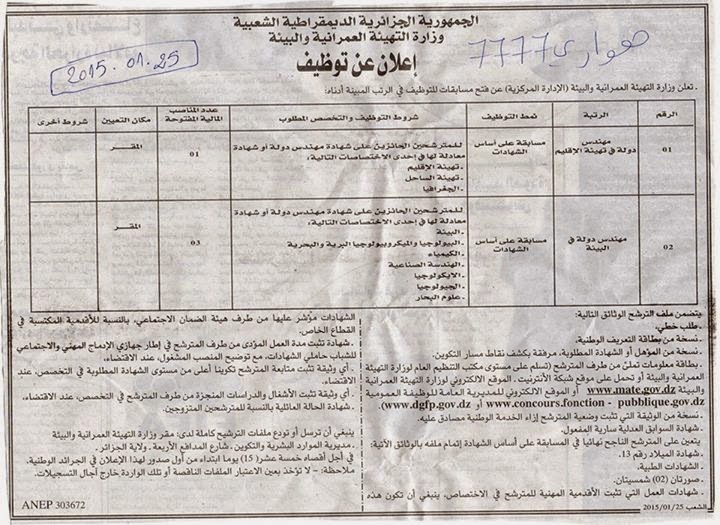 الجمهورية الجزائرية الديمقراطية الشعبية
وزارة التهيئة العمرانية والبيئة
إعلان عن توظيف
2015.01.25
هواري 7777
. تعلن وزارة التهيئة العمرانية والبيئة (الإدارة المركزية) عن فتح مسابقات للتوظيف في الرتب المبينة أدناه:
الرقم
الرتبة
نمط التوظيف
شروط التوظيف والتخصص المطلوب
عدد المناصب المالية المفتوحة
مكان التعيين
شروط أخرى
01
مهندس
دولة في تهيئة الإقليم
مسابقة على أساس
الشهادات
للمترشحين الحائزين على شهادة مهندس دولة أو شهادة
معادلة لها في إحدى الاختصاصات التالية:
- تهيئة الإقليم
- تهيئة الساحل
- الجغرافيا
01
المقر
02
مهندس دولة في
البيئة
مسابقة على أساس
الشهادات
للمترشحين الحائزين على شهادة مهندس دولة أو شهادة
معادلة لها في إحدى الاختصاصات التالية:
- البيئة
- البيولوجيا والميكروبيولوجيا البرية والبحرية
- الكيمياء
- الهندسة الصناعية
- الايكولوجيا
- الجيولوجيا
- علوم البحار
03
المقر
يتضمن ملف الترشح الوثائق التالية:
- طلب خطي.
- نسخة من بطاقة التعريف الوطنية.
- نسخة من المؤهل أو الشهادة المطلوبة، مرفقة بكشف نقاط مسار التكوين.
- بطاقة معلومات تملئ من طرف المترشح (تسلم على مستوى مكتب التنظيم العام لوزارة التهيئة
العمرانية والبيئة أو تحمل على موقع شبكة الأنترنيت. الموقع الالكتروني لوزارة التهيئة العمرانية
والبيئة www.mate.gov.dz أو الموقع الالكتروني للمديرية العامة للوظيفة العمومية
www.concours.fonction - publique.gov.dz أو www.dgfp.gov.dz).
- نسخة من الوثيقة التي تثبت وضعية المترشح إزاء الخدمة الوطنية مصادق عليه.
- شهادة السوابق العدلية سارية المفعول.
يتعين على المترشح الناجح نهائيا في المسابقة على أساس الشهادة إتمام ملفه بالوثائق الآتية:
- شهادة الميلاد رقم 13.
- الشهادات الطبية.
- صورتان (02) شمسيتان.
- شهادات العمل التي تثبت الأقدمية المهنية للمترشح في الاختصاص، ينبغي أن تكون هذه
الشهادات مؤشر عليها من طرف هيئة الضمان الاجتماعي، بالنسبة للأقدمية المكتسبة في
القطاع الخاص.
- شهادة تثبت مدة العمل المؤدى من طرف المترشح في إطار جهازي الإدماج المهني والاجتماعي
للشباب حاملي الشهادات، مع توضيح المنصب المشغول، عند الاقتضاء.
- أي وثيقة تثبت متابعة المترشح تكوينا أعلى من مستوى الشهادة المطلوبة في التخصص، عند
الاقتضاء.
- أي وثيقة تثبت الأشغال والدراسات المنجزة من طرف المترشح في التخصص، عند الاقتضاء.
- شهادة الحالة العائلية بالنسبة للمترشحين المتزوجين.
ينبغي أن ترسل أو تودع ملفات الترشيح كاملة لدى: مقر وزارة التهيئة العمرانية والبيئة
. مديرية الموارد البشرية والتكوين . شارع المدافع الأربعة . ولاية الجزائر .
في أجل أقصاه خمسة عشر (15) يوما ابتداء من أول صدور لهذا الإعلان في الجرائد الوطنية.
ملاحظة: – لا تؤخذ بعين الاعتبار الملفات الناقصة أو تلك الواردة خارج آجال التسجيلات.
ANEP 303672
الشعب 2015/01/25